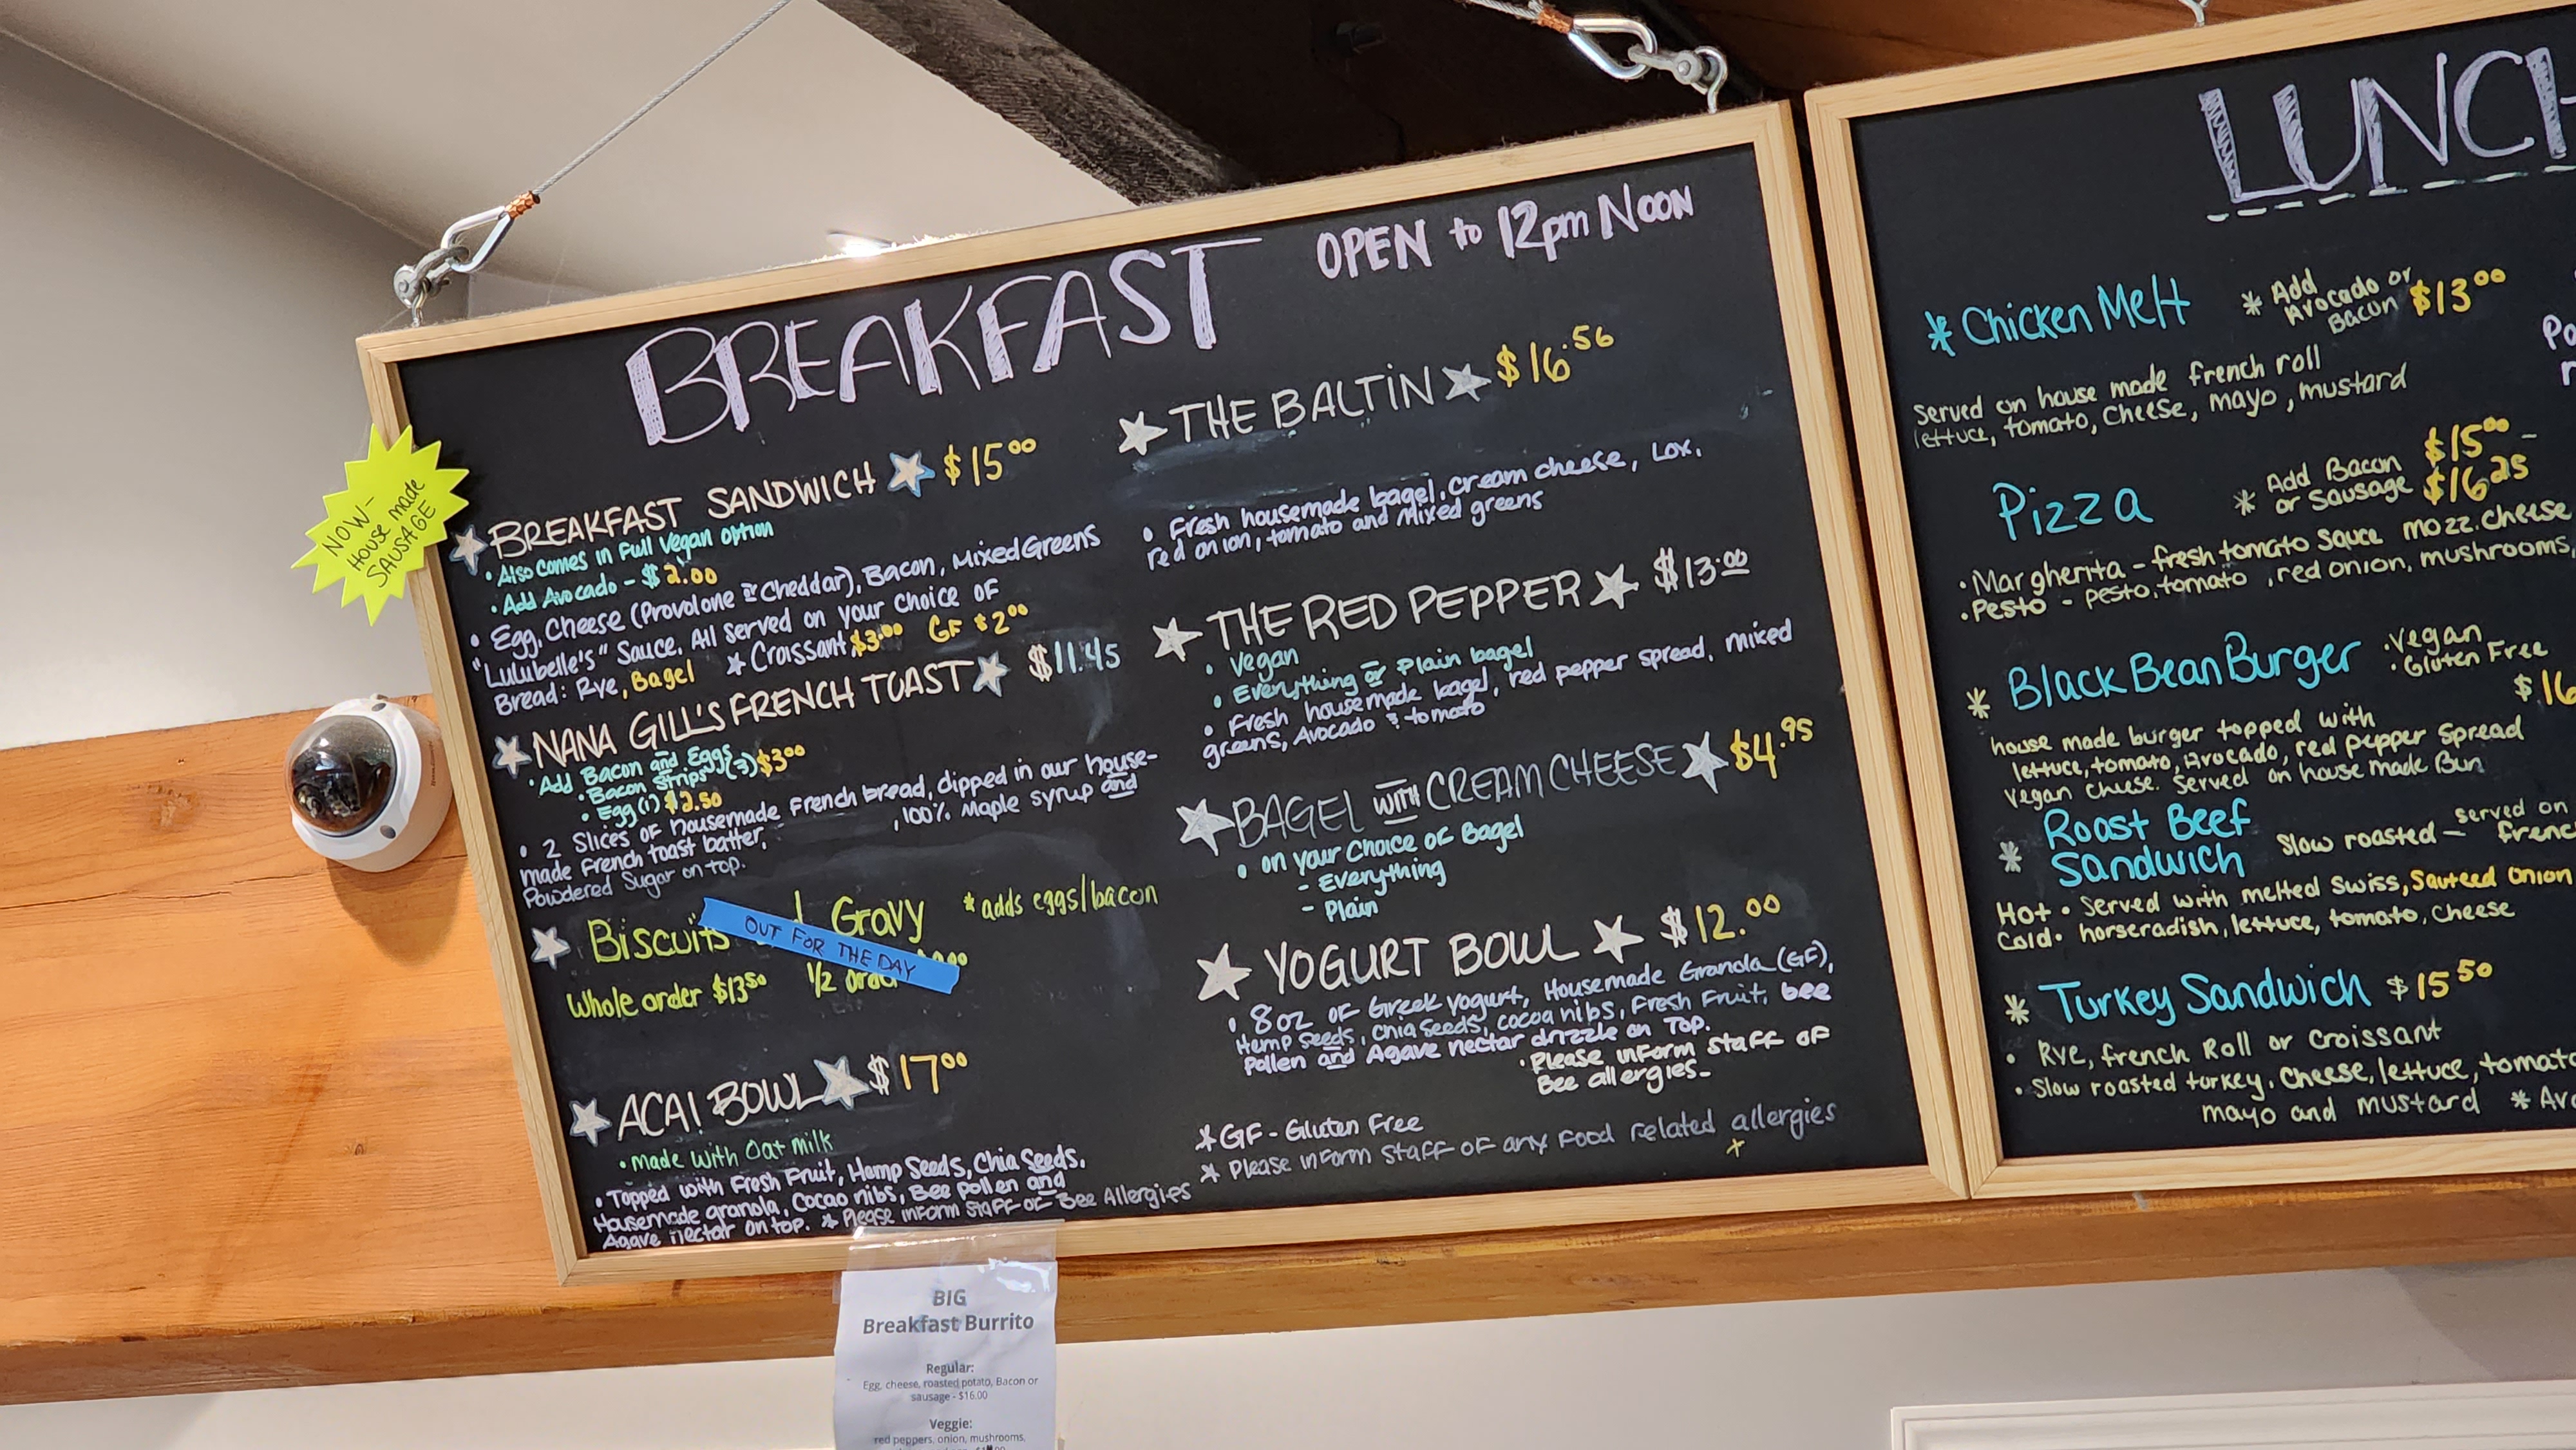 BREAKFAST
OPEN to 12pm NOON
NOW-
House made
SAUSAGE
BREAKFAST SANDWICH $15.00
• Also comes in Full Vegan option
• Add Avocado - $2.00
• Egg, Cheese (Provolone or Cheddar), Bacon, Mixed Greens
"Lulubelle's" Sauce. All served on your choice of
Bread: Rye, Bagel * Croissant $3.00 GF $2.00
NANA GILL'S FRENCH TOAST $11.45
• Add Bacon and Eggs
• Bacon Strips (3) $3.00
• Egg (1) $2.50
• 2 Slices of housemade French bread, dipped in our house-
made French toast batter, , 100% Maple syrup and
Powdered Sugar on top.
Biscuits Gravy *adds eggs/bacon
OUT FOR THE DAY
Whole order $13.50 1/2 order
ACAI BOWL $17.00
• made with Oat milk
• Topped with Fresh Fruit, Hemp Seeds, Chia Seeds,
Housemade granola, Cocao nibs, Bee pollen and
Agave nectar on top. * Please inform staff of Bee Allergies
THE BALTIN $16.56
• Fresh housemade bagel, cream cheese, Lox,
red onion, tomato and mixed greens
THE RED PEPPER $13.00
• Vegan
• Everything or Plain bagel
• Fresh housemade bagel, red pepper spread, mixed
greens, Avocado & tomato
BAGEL WITH CREAM CHEESE $4.95
• on your Choice of Bagel
- Everything
- Plain
YOGURT BOWL $12.00
• 8 oz of Greek yogurt, Housemade Granola (GF),
Hemp Seeds, Chia Seeds, cocoa nibs, Fresh Fruit, bee
Pollen and Agave nectar drizzle on Top.
• Please inform staff of
Bee allergies-
* GF - Gluten Free
* Please inform staff of any food related allergies
LUNCH
* Chicken Melt * Add Avocado or Bacon $13.00
Served on house made french roll
lettuce, tomato, cheese, mayo, mustard
Pizza * Add Bacon or Sausage $15.00 - $16.25
• Margherita - fresh tomato sauce mozz. cheese
• Pesto - pesto, tomato, red onion, mushrooms,
* Black Bean Burger • Vegan • Gluten Free
$16
house made burger topped with
lettuce, tomato, Avocado, red pepper spread
vegan cheese. Served on house made Bun
* Roast Beef Sandwich Slow roasted - served on
Hot • Served with melted Swiss, Sauteed Onion
Cold • horseradish, lettuce, tomato, cheese
* Turkey Sandwich $15.50
• Rye, french Roll or Croissant
• Slow roasted turkey, Cheese, lettuce, tomato
mayo and mustard *
BIG
Breakfast Burrito
Regular:
Egg, cheese, roasted potato, Bacon or
sausage - $16.00
Veggie:
red peppers, onion, mushrooms,